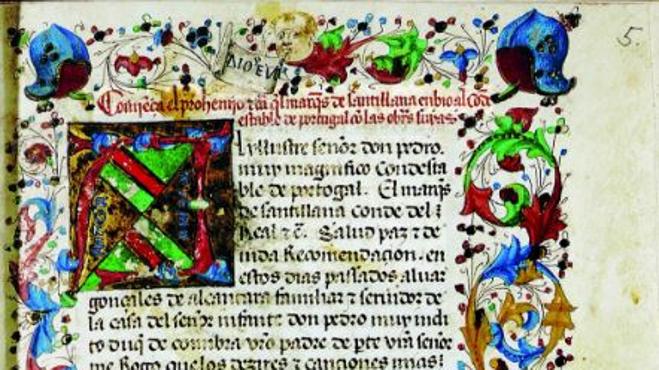 5.
DIOS E VOS
Comieça el prohemio τ cã ql marqs de santillana enbio al Cõde
estable de portugal cõ las obrs suyas
Al yllustre señor don pedro.
muy magnifico Condesta
ble de portogal. El marqs
de santillana conde del
Real τ c̃. Salud paz τ de
uida Recomendacion. en
estos dias passados aluar
gonçales de alcantara familiar τ seruidor de
la casa del señor infante don pedro muy indi
to duq̃ de coimbra vr̃o padre de pte vr̃a señor
me Rogo que los dezires τ canciones mias